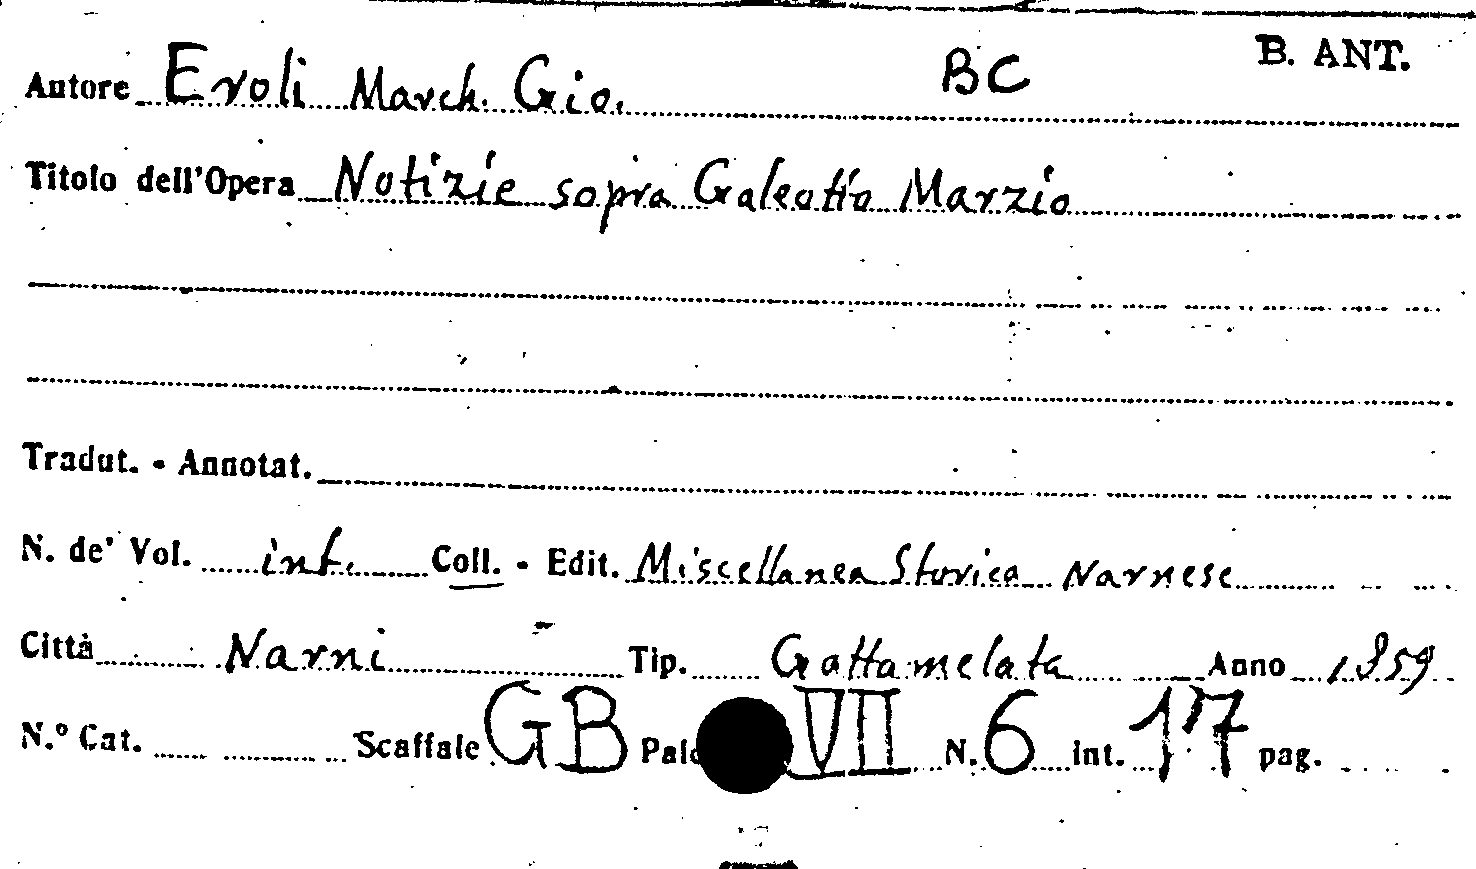 B. ANT.
Autore Eroli March. Gio. BC
Titolo dell'Opera Notizie sopra Galeotto Marzio
Tradut. - Annotat.
N. de' Vol. int. Coll. - Edit. Miscellanea Storica Narnese
Città Narni Tip. Gattamelata Anno 1859
N.º Cat. Scaffale GB Palc VII N. 6 int. 17 pag.